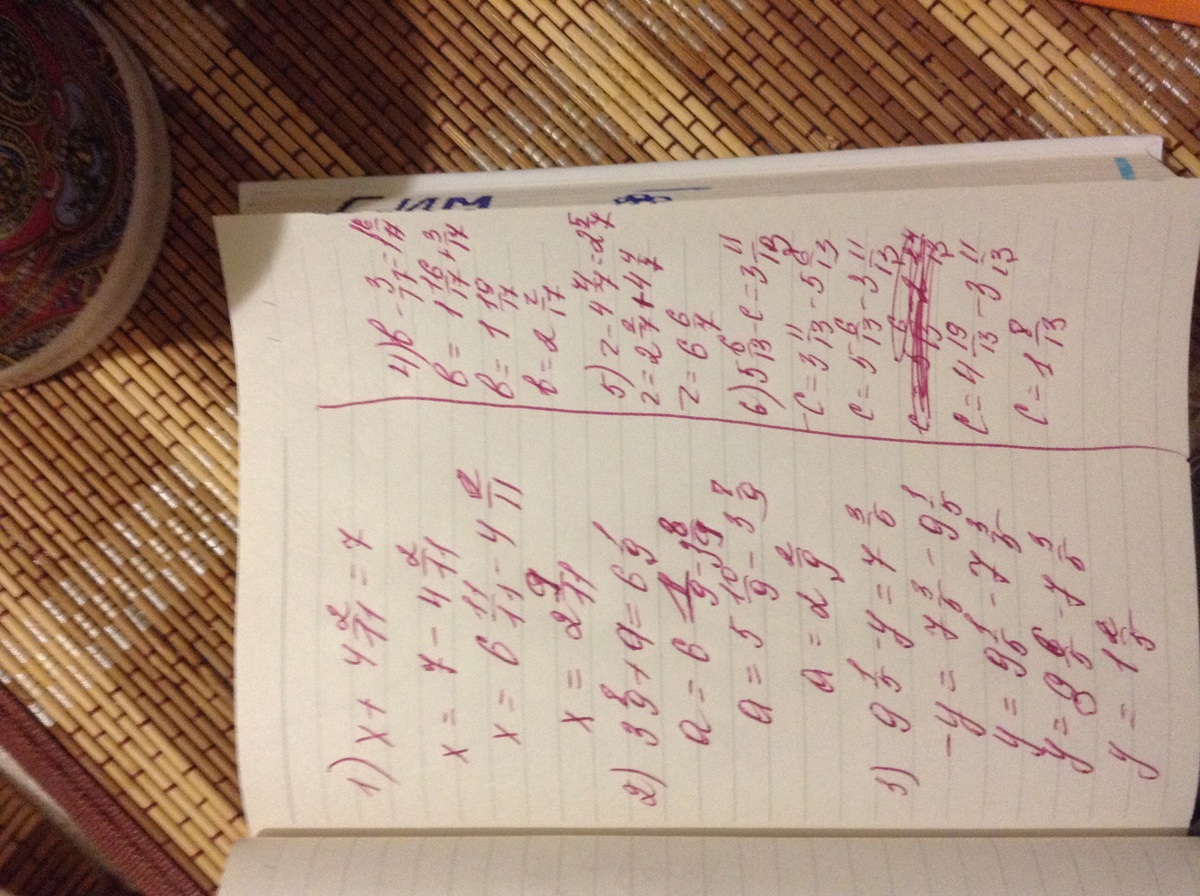 1) x + 4 2/11 = 7
x = 7 - 4 2/11
x = 6 11/11 - 4 2/11
x = 2 9/11
2) 3 8/9 + a = 6 1/9
a = 6 1/9 - 3 8/9
a = 5 10/9 - 3 8/9
a = 2 2/9
3) 9 1/5 - y = 7 3/5
-y = 7 3/5 - 9 1/5
y = 9 1/5 - 7 3/5
y = 8 6/5 - 7 3/5
y = 1 2/5
4) в - 3/17 = 1 16/17
в = 1 16/17 + 3/17
в = 1 19/17
в = 2 2/17
5) z - 4 4/7 = 2 2/7
z = 2 2/7 + 4 4/7
z = 6 6/7
6) 5 6/13 - c = 3 11/13
-c = 3 11/13 - 5 6/13
c = 5 6/13 - 3 11/13
c = 4 19/13 - 3 11/13
c = 1 8/13